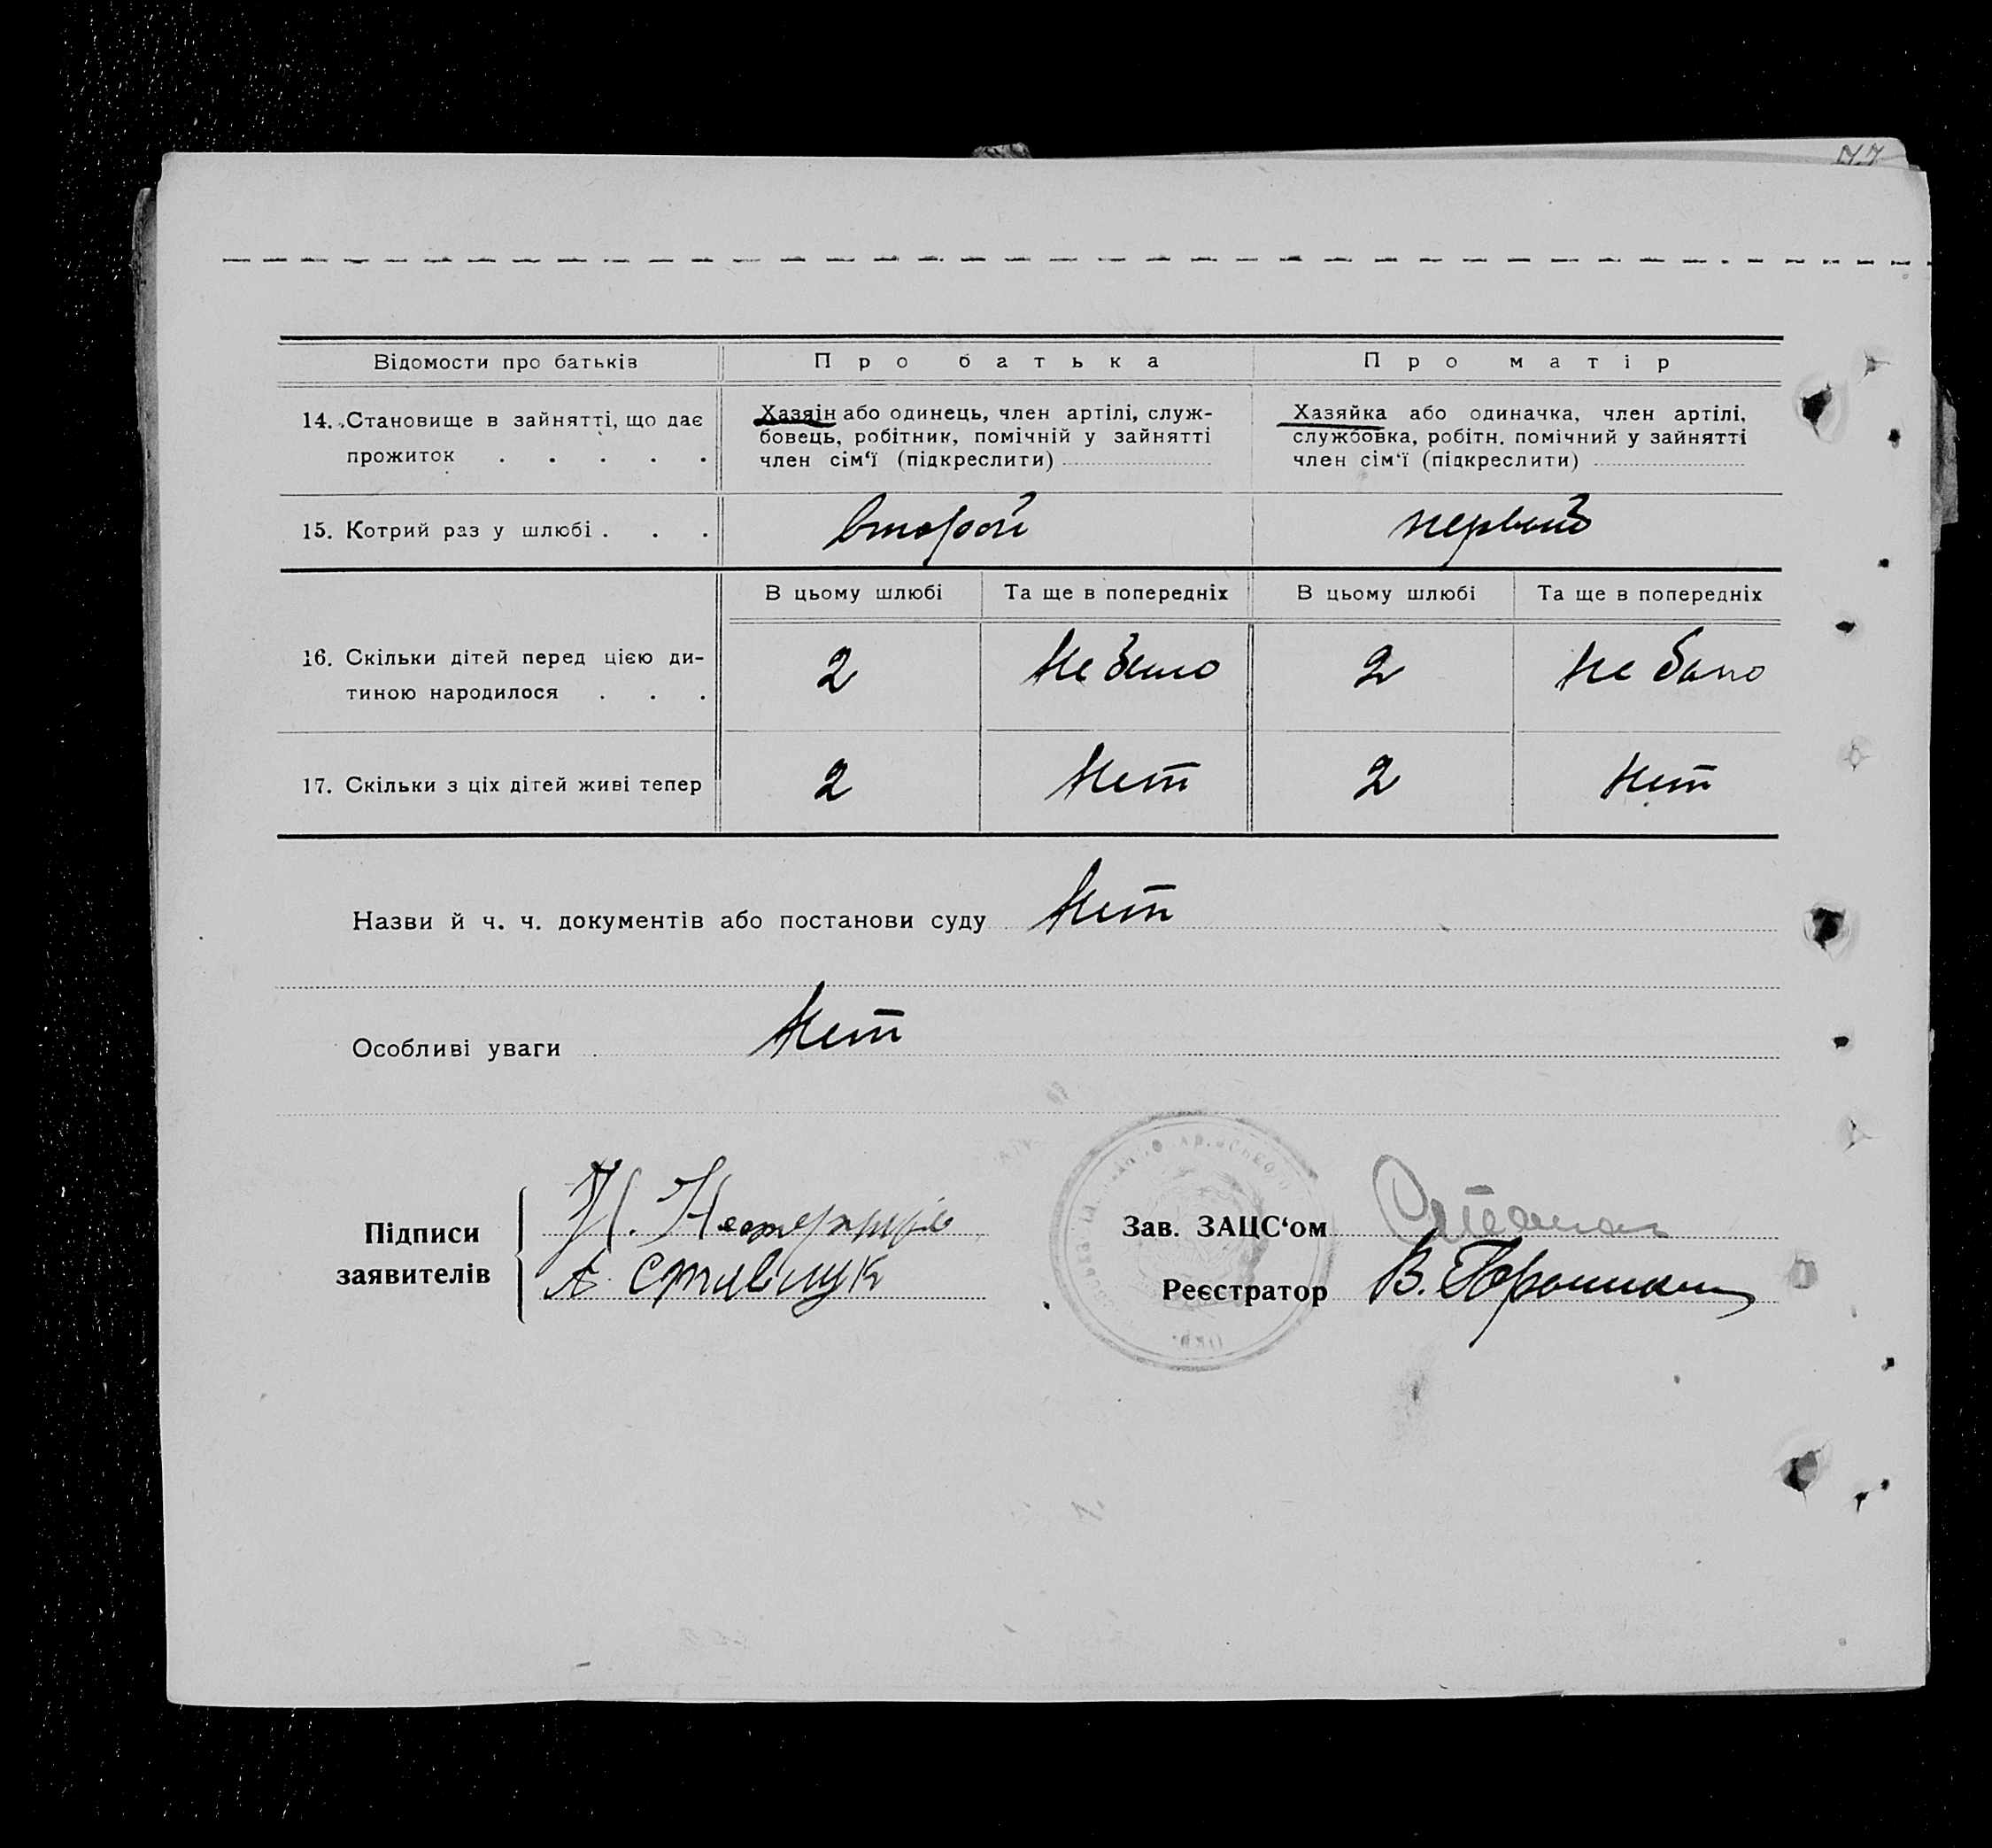 77
Відомости про батьків
Про батька
Про матір
14. Становище в зайнятті, що дає
прожиток . . . . .
Хазяїн або одинець, член артілі, служ-
бовець, робітник, помічній у зайнятті
член сім‘ї (підкреслити)
Хазяйка або одиначка, член артілі,
службовка, робітн. помічний у зайнятті
член сім‘ї (підкреслити)
15. Котрий раз у шлюбі . . .
второй
первый
В цьому шлюбі
Та ще в попередніх
В цьому шлюбі
Та ще в попередніх
16. Скільки дітей перед цією ди-
тиною народилося . . .
2
не было
2
не было
17. Скільки з ціх дітей живі тепер
2
Нет
2
Нет
Назви й ч. ч. документів або постанови суду Нет
Особливі уваги Нет
Підписи
заявителів
Н.
А.
Зав. ЗАЦС‘ом
Реєстратор В.